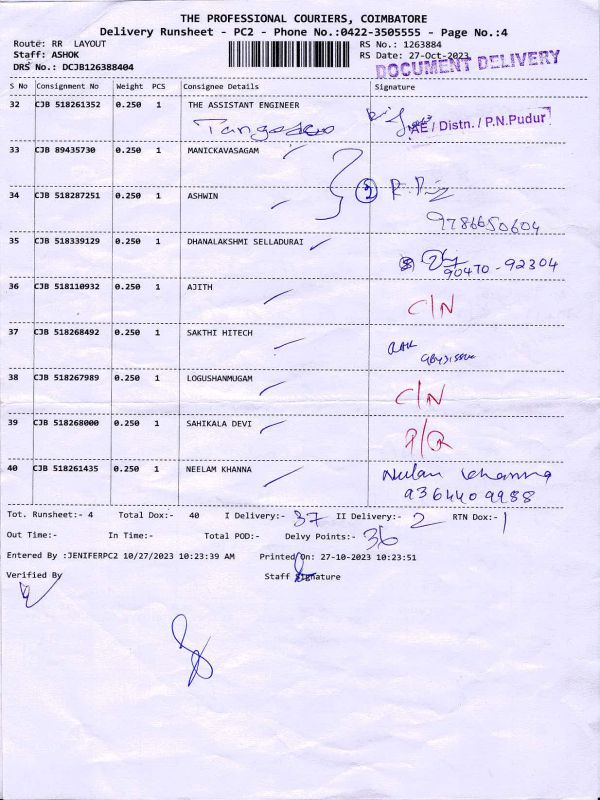 THE PROFESSIONAL COURIERS, COIMBATORE
Delivery Runsheet - PC2 - Phone No.:0422-3505555 - Page No.:4
Route: RR LAYOUT RS No.: 1263884
Staff: ASHOK RS Date: 27-Oct-2023
DOCUMENT DELIVERY
DRS No.: DCJB126388404
S No Consignment No Weight PCS Consignee Details Signature
32 CJB 518261352 0.250 1 THE ASSISTANT ENGINEER
AE / Distn. / P.N.Pudur
33 CJB 89435730 0.250 1 MANICKAVASAGAM
34 CJB 518287251 0.250 1 ASHWIN 2
9786650604
35 CJB 518339129 0.250 1 DHANALAKSHMI SELLADURAI
90470-92304
36 CJB 518110932 0.250 1 AJITH C/N
37 CJB 518268492 0.250 1 SAKTHI HITECH
38 CJB 518267989 0.250 1 LOGUSHANMUGAM C/N
39 CJB 518268000 0.250 1 SAHIKALA DEVI
40 CJB 518261435 0.250 1 NEELAM KHANNA Neelam Khanna
9364409988
Tot. Runsheet:- 4 Total Dox:- 40 I Delivery:- 37 II Delivery:- 2 RTN Dox:- 1
Out Time:- In Time:- Total POD:- Delvy Points:- 36
Entered By :JENIFERPC2 10/27/2023 10:23:39 AM Printed On: 27-10-2023 10:23:51
Verified By Staff Signature